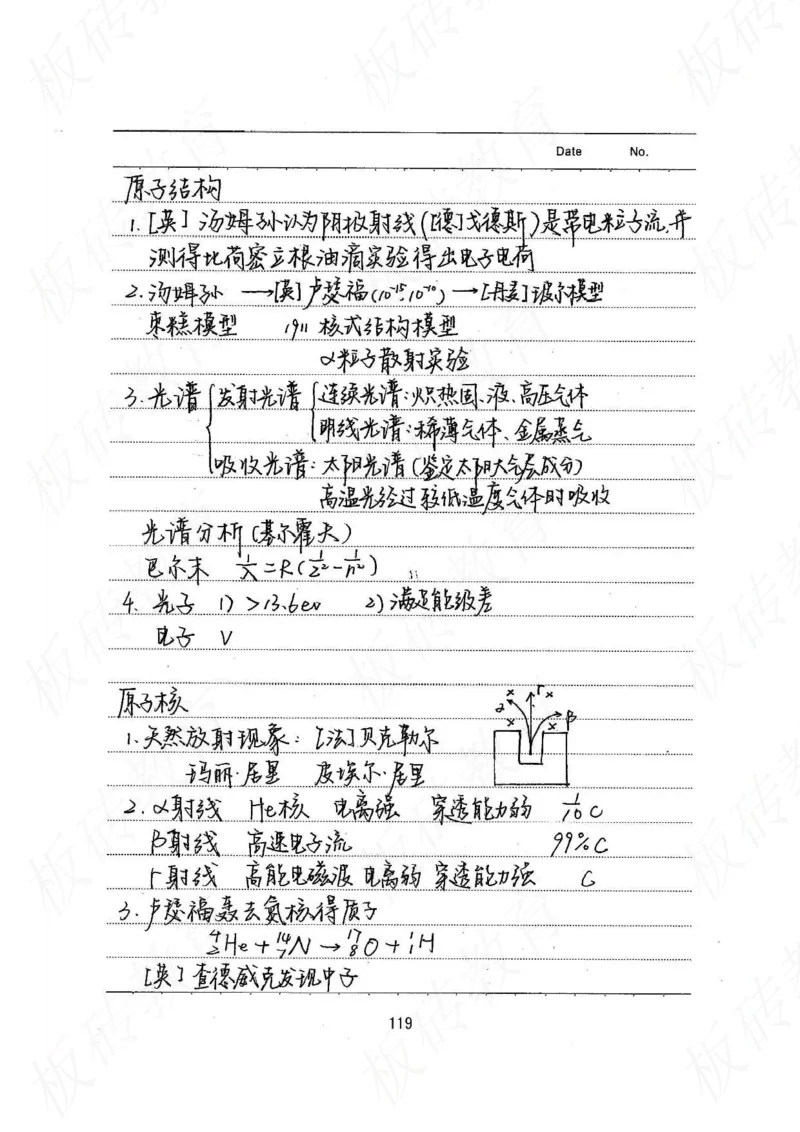 Date No.
原子结构
1. [英] 汤姆孙认为阴极射线([德]戈德斯)是带电粒子流,并
测得比荷密立根油滴实验得出电子电荷
2. 汤姆孙 ⟶[英]卢瑟福(10⁻¹⁵,10⁻¹⁰) ⟶[丹麦]玻尔模型
枣糕模型 1911 核式结构模型
α粒子散射实验
3. 光谱 { 发射光谱 { 连续光谱:炽热固、液、高压气体
明线光谱:稀薄气体、金属蒸气
吸收光谱:太阳光谱(鉴定太阳大气层成分)
高温光经过较低温度气体时吸收
光谱分析(基尔霍夫)
巴尔末 1/λ=R(1/2²-1/n²)
4. 光子 1) >13.6ev 2)满足能级差
电子 V
原子核
α × r × × × β
1. 天然放射现象: [法]贝克勒尔
玛丽·居里 皮埃尔·居里
2. α射线 He核 电离强 穿透能力弱 1/10 C
β射线 高速电子流 99%C
r射线 高能电磁波 电离弱 穿透能力强 C
3. 卢瑟福轰击氮核得质子
⁴₂He+¹⁴₇N→¹⁷₈O+¹₁H
[英]查德威克发现中子
119
板砖教育